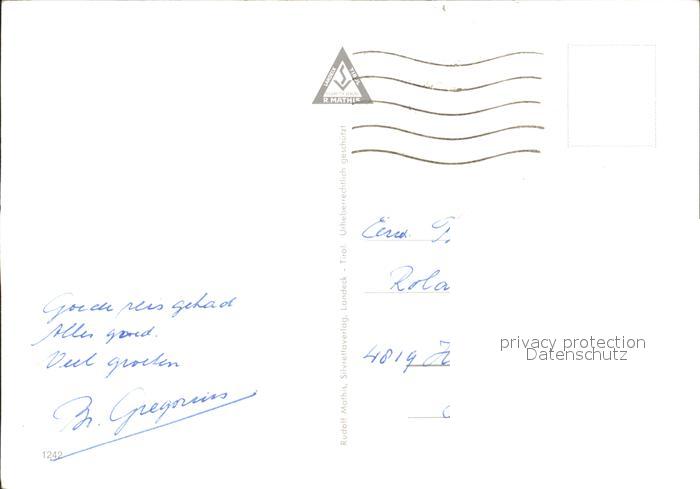 R. MATHIS
Rudolf Mathis, Silvrettaverlag, Landeck - Tirol. Urheberrechtlich geschützt
Goede reis gehad
Alles goed.
Veel groeten
Br. Gregorius
1242
Rola
4819 H
privacy protection
Datenschutz